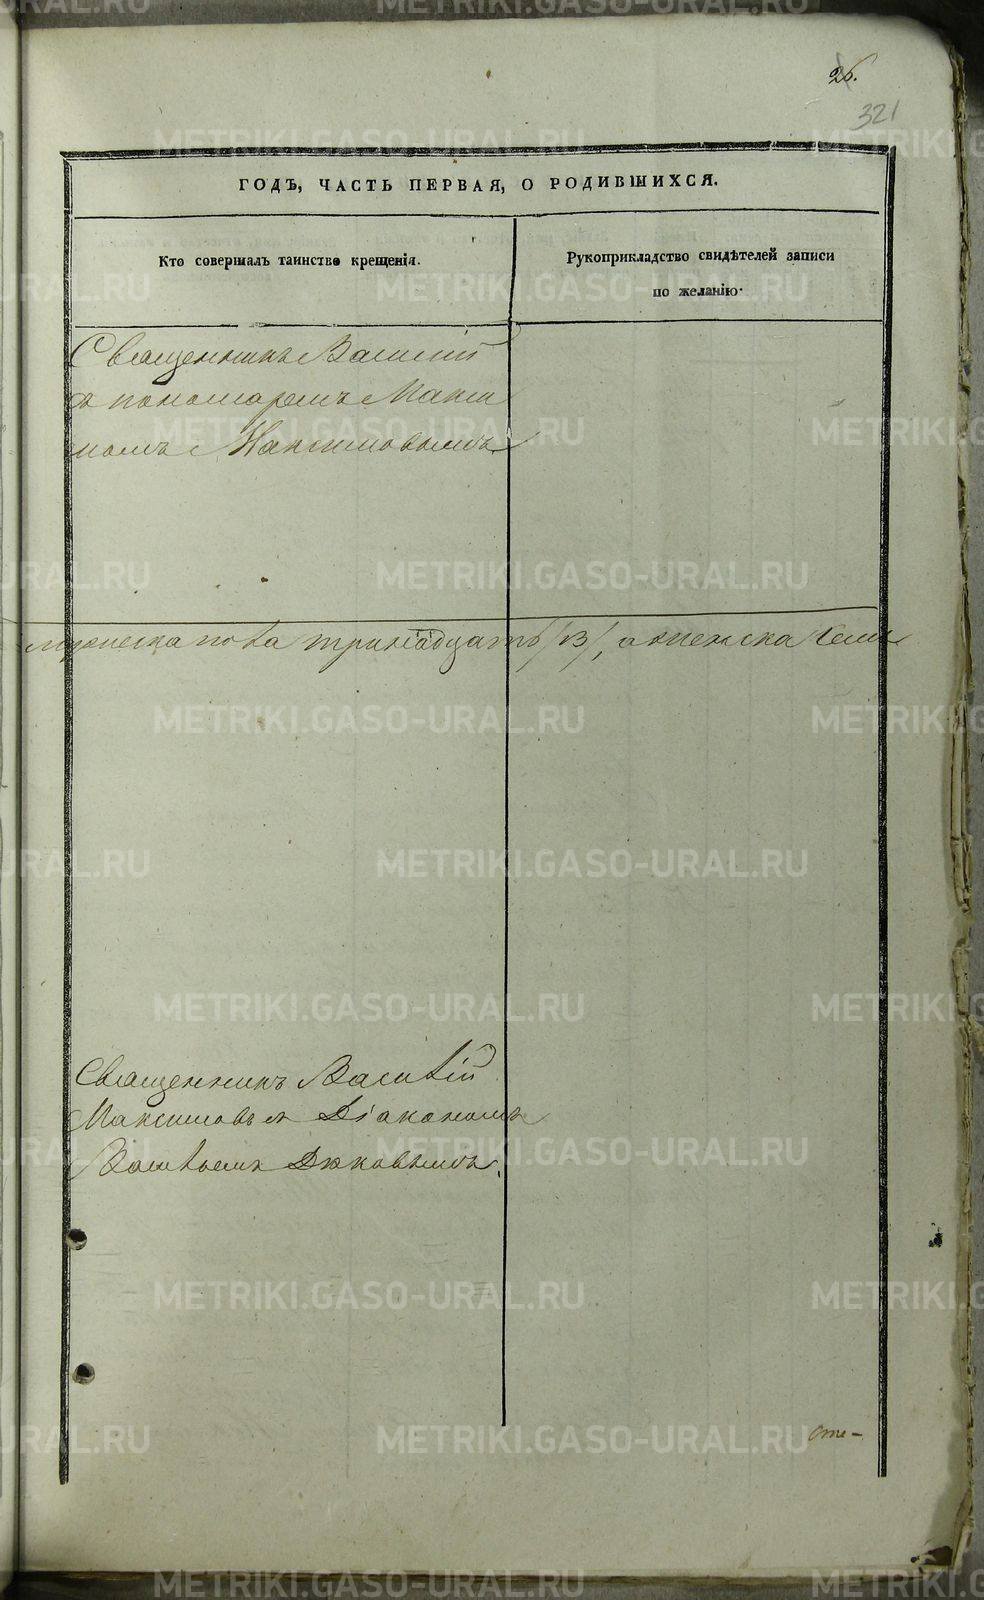 26.
321
ГОДЪ, ЧАСТЬ ПЕРВАЯ, О РОДИВШИХСЯ.
Кто совершалъ таинство крещенія.
Рукоприкладство свидѣтелей записи
по желанію.
Священникъ Василій
съ пономаремъ Макси
момъ Максимовымъ
мужеска пола тринадцать /13/, а женска
Священникъ Василій
Максимовъ съ Діакономъ
Васильемъ
Оте-
METRIKI.GASO-URAL.RU